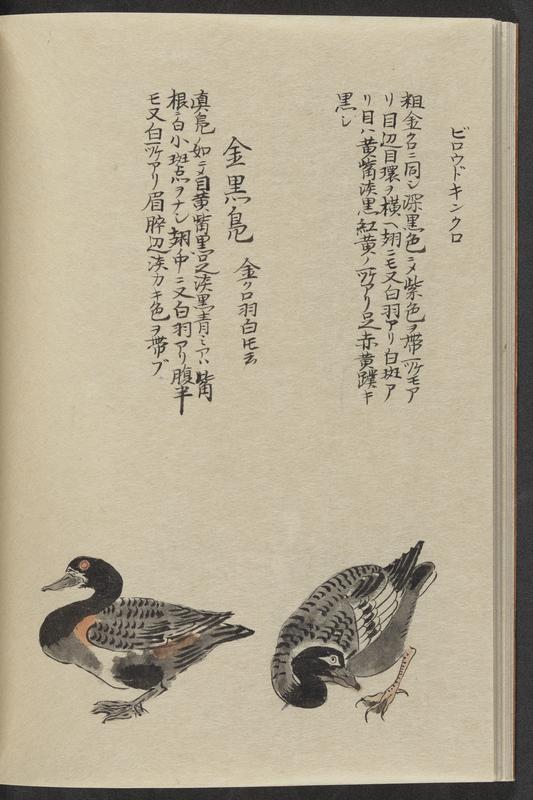 ビロウドキンクロ
粗金クロニ同シ深黒色ニメ紫色ヲ帯ヒ㸃モア
リ目辺目環ヲ横ヘ翅ニモ又白羽アリ白斑ア
リ目ハ黄觜淡黒紅黄ノ㸃アリ足赤黄蹼キ
黒シ
金黒鳧 金クロ羽白モ云
真鳧ノ如ニメ目黄觜黒足淡黒青ミアハ觜
根ニ白小斑点ヲナシ翅中ニ又白羽アリ腹半
モ又白㸃アリ眉脺辺淡カキ色ヲ帯ブ